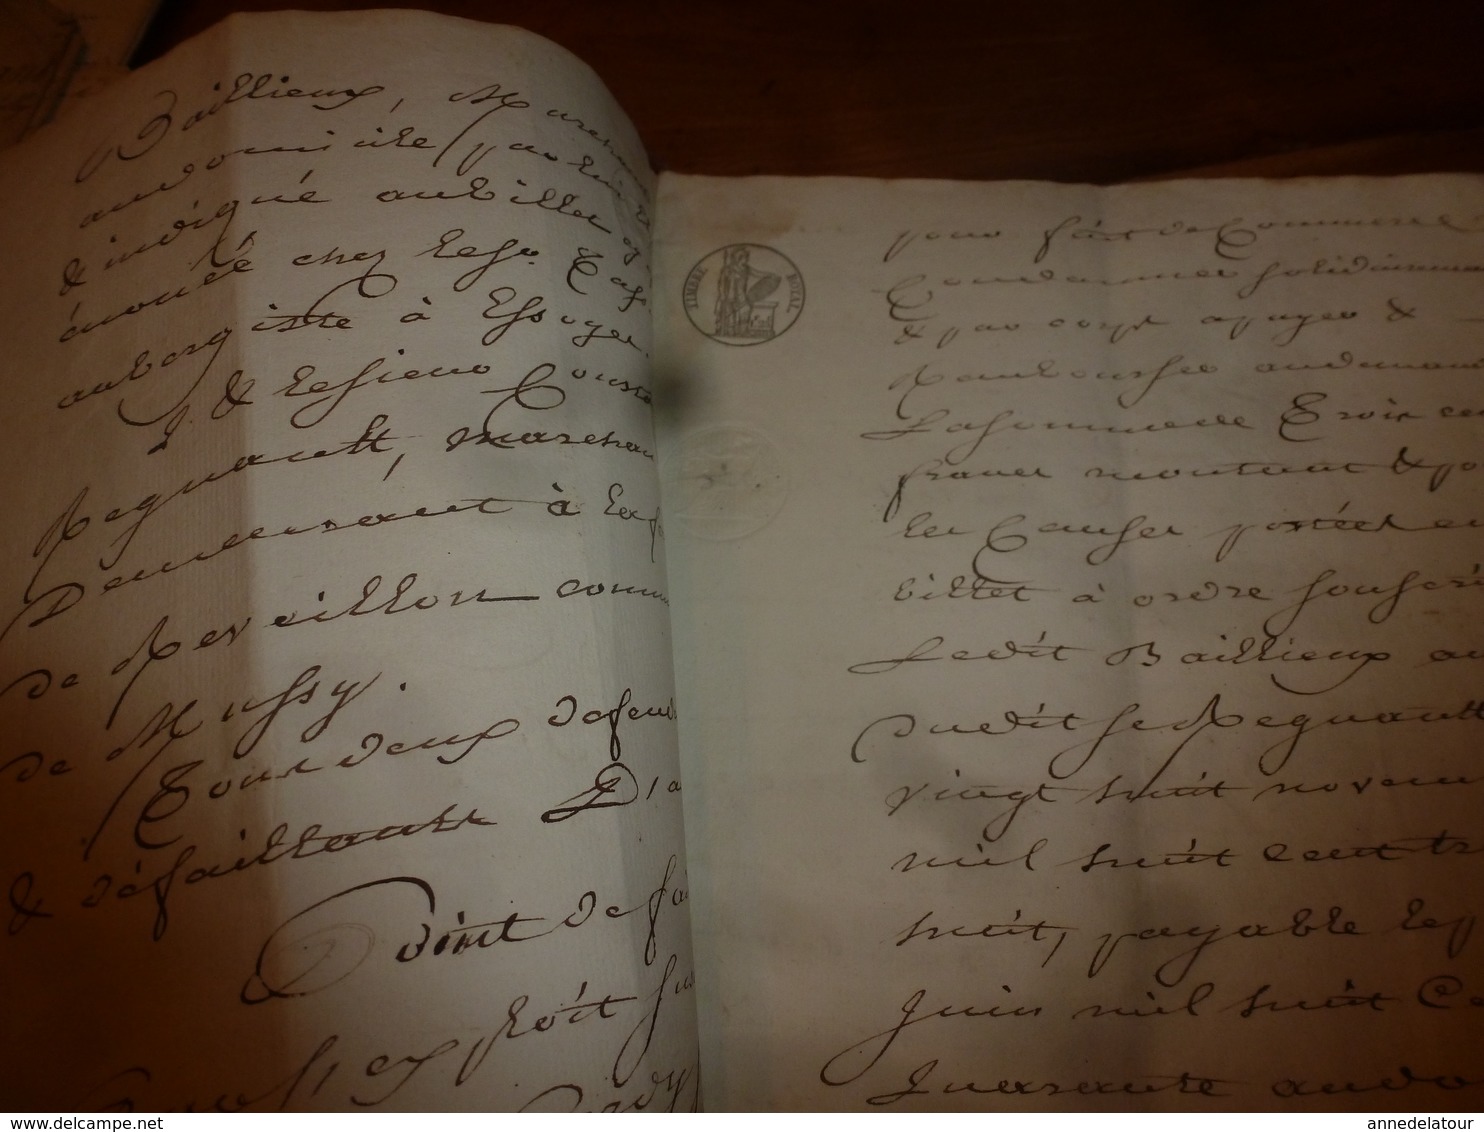 Baillieux, Marchan
au domicile par lui
& indiqué au billet
chez le Sr.
aubergiste à Essoyes
2. & le Sieur
Regnault, marchan
Demeurant à la f
de Reveillon comm
de Mussy.
Tous deux defend
& défaillants D'a
Point de fai
soit
TIMBRE ROYAL
pour fait de Commerce
Condamner solidairemen
& par corps a payer &
Rembourser au demand
La somme de Trois cen
francs montant & po
les Causes portées en
billet à ordre souscri
Ledit Baillieux au
dudit Sr. Regnault
vingt huit novem
mil huit cent tr
huit, payable le p
Juin mil huit Ce
Quarante au do
www.delcampe.net
annedelatour